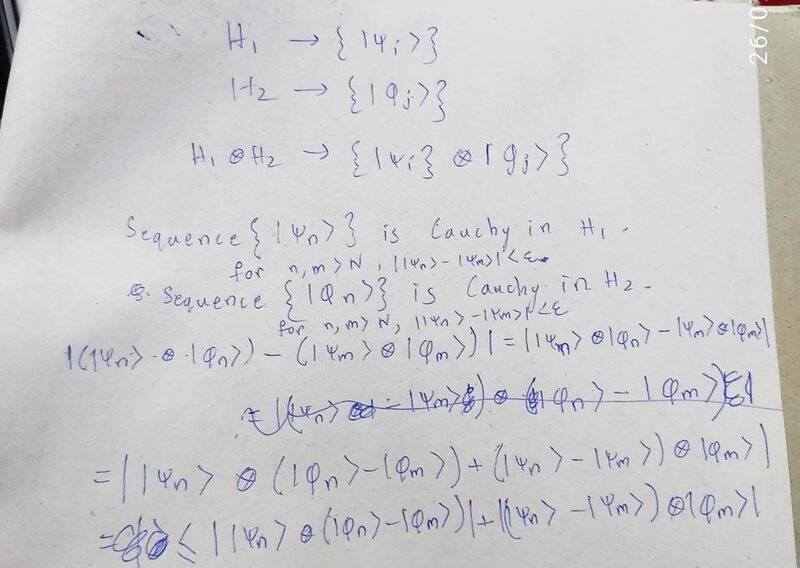 26/0
H₁ → {|ψᵢ>}
H₂ → {|φⱼ>}
H₁ ⊗ H₂ → {|ψᵢ} ⊗ |φⱼ>}
Sequence {|ψₙ>} is Cauchy in H₁.
for n,m > N, ||ψₙ> - |ψₘ>| < ε
Sequence {|φₙ>} is Cauchy in H₂.
for n,m > N, ||ψₙ> - |ψₘ>| < ε
|(|ψₙ> ⊗ |φₙ>) - (|ψₘ> ⊗ |φₘ>)| = ||ψₘ> ⊗ |φₙ> - |ψₘ> ⊗ |φₘ>|
= |(|ψₙ> - |ψₘ>) ⊗ (|φₙ> - |φₘ>)|
= ||ψₙ> ⊗ (|φₙ> - |φₘ>) + (|ψₙ> - |ψₘ>) ⊗ |φₘ>|
= ≤ ||ψₙ> ⊗ (|φₙ> - |φₘ>)| + |(|ψₙ> - |ψₘ>) ⊗ |φₘ>|